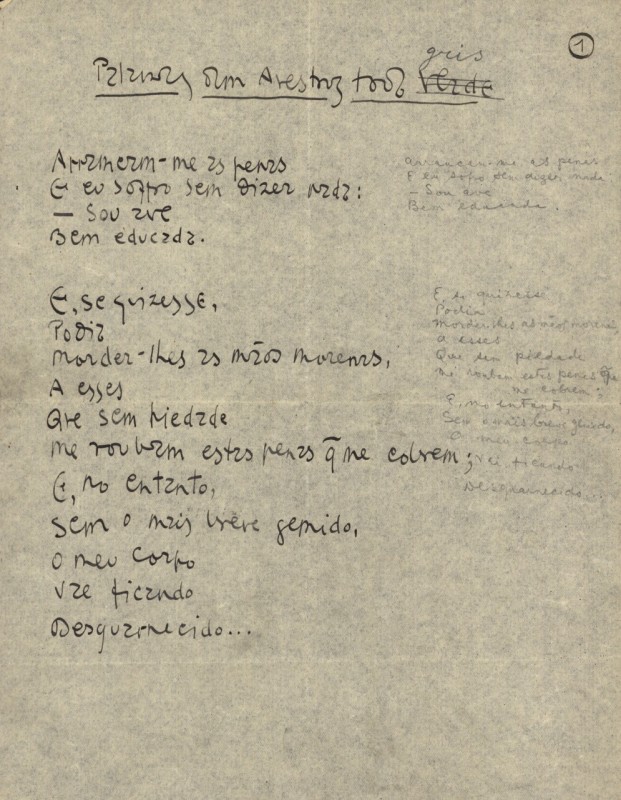 1
gris
Palavras dum Avestruz todo Verde
Arrancam-me as penas
E eu soffro sem dizer nada:
— Sou ave
Bem educada.
E, se quizesse,
Podia
Morder-lhes as mãos morenas,
A esses
Que sem piedade
Me roubam estas penas q̃ me cobrem;
E, no entanto,
Sem o mais breve gemido,
O meu corpo
Vae ficando
Desguarnecido...
Arrancam-me as penas
E eu sofro sem dizer nada
— Sou ave
Bem educada.
E, se quizesse
Podia
Morder-lhes as mãos morenas,
a esses
Que sem piedade
me roubam estas penas que
me cobrem;
E, no entanto,
Sem o mais breve gemido,
O meu corpo
Vai ficando
Desguarnecido...